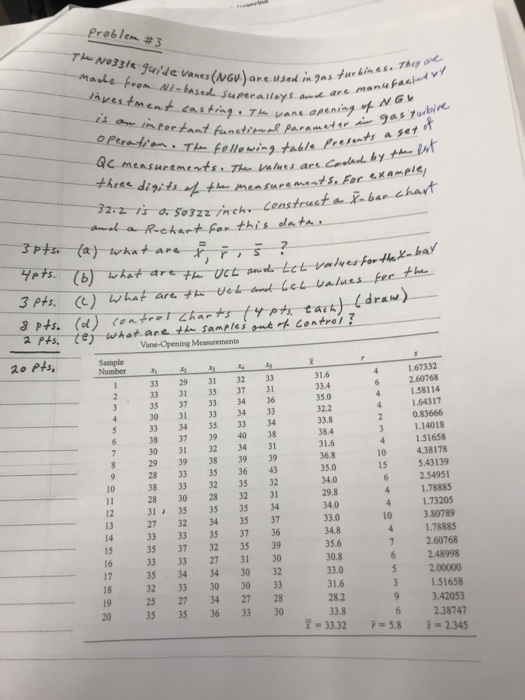 Problem #3
The Nozzle guide vanes (NGV) are used in gas turbines. They are
made from Ni-based superalloys and are manufactured by
investment casting. The vane opening of NGV
is an important functional parameter in gas turbine
operation. The following table presents a set of
QC measurements. The values are coded by the last
three digits of the measurements. For example,
32.2 is 0.50322 inch. Construct a x̄-bar chart
and a R-chart for this data.
3 pts. (a) what are x̿, r̄, s̄ ?
4 pts. (b) what are the UCL and LCL values for the X-bar
3 pts. (c) what are the UCL and LCL values for the
8 pts. (d) control charts (4 pts. each) (draw)
2 pts. (e) what are the samples out of control?
20 pts.
Vane-Opening Measurements
Sample Number x₁ x₂ x₃ x₄ x₅ x̄ r s
1 33 29 31 32 33 31.6 4 1.67332
2 33 31 35 37 31 33.4 6 2.60768
3 35 37 33 34 36 35.0 4 1.58114
4 30 31 33 34 33 32.2 4 1.64317
5 33 34 35 33 34 33.8 2 0.83666
6 38 37 39 40 38 38.4 3 1.14018
7 30 31 32 34 31 31.6 4 1.51658
8 29 39 38 39 39 36.8 10 4.38178
9 28 33 35 36 43 35.0 15 5.43139
10 38 33 32 35 32 34.0 6 2.54951
11 28 30 28 32 31 29.8 4 1.78885
12 31 35 35 35 34 34.0 4 1.73205
13 27 32 34 35 37 33.0 10 3.80789
14 33 33 35 37 36 34.8 4 1.78885
15 35 37 32 35 39 35.6 7 2.60768
16 33 33 27 31 30 30.8 6 2.48998
17 35 34 34 30 32 33.0 5 2.00000
18 32 33 30 30 33 31.6 3 1.51658
19 25 27 34 27 28 28.2 9 3.42053
20 35 35 36 33 30 33.8 6 2.38747
x̿ = 33.32 r̄ = 5.8 s̄ = 2.345